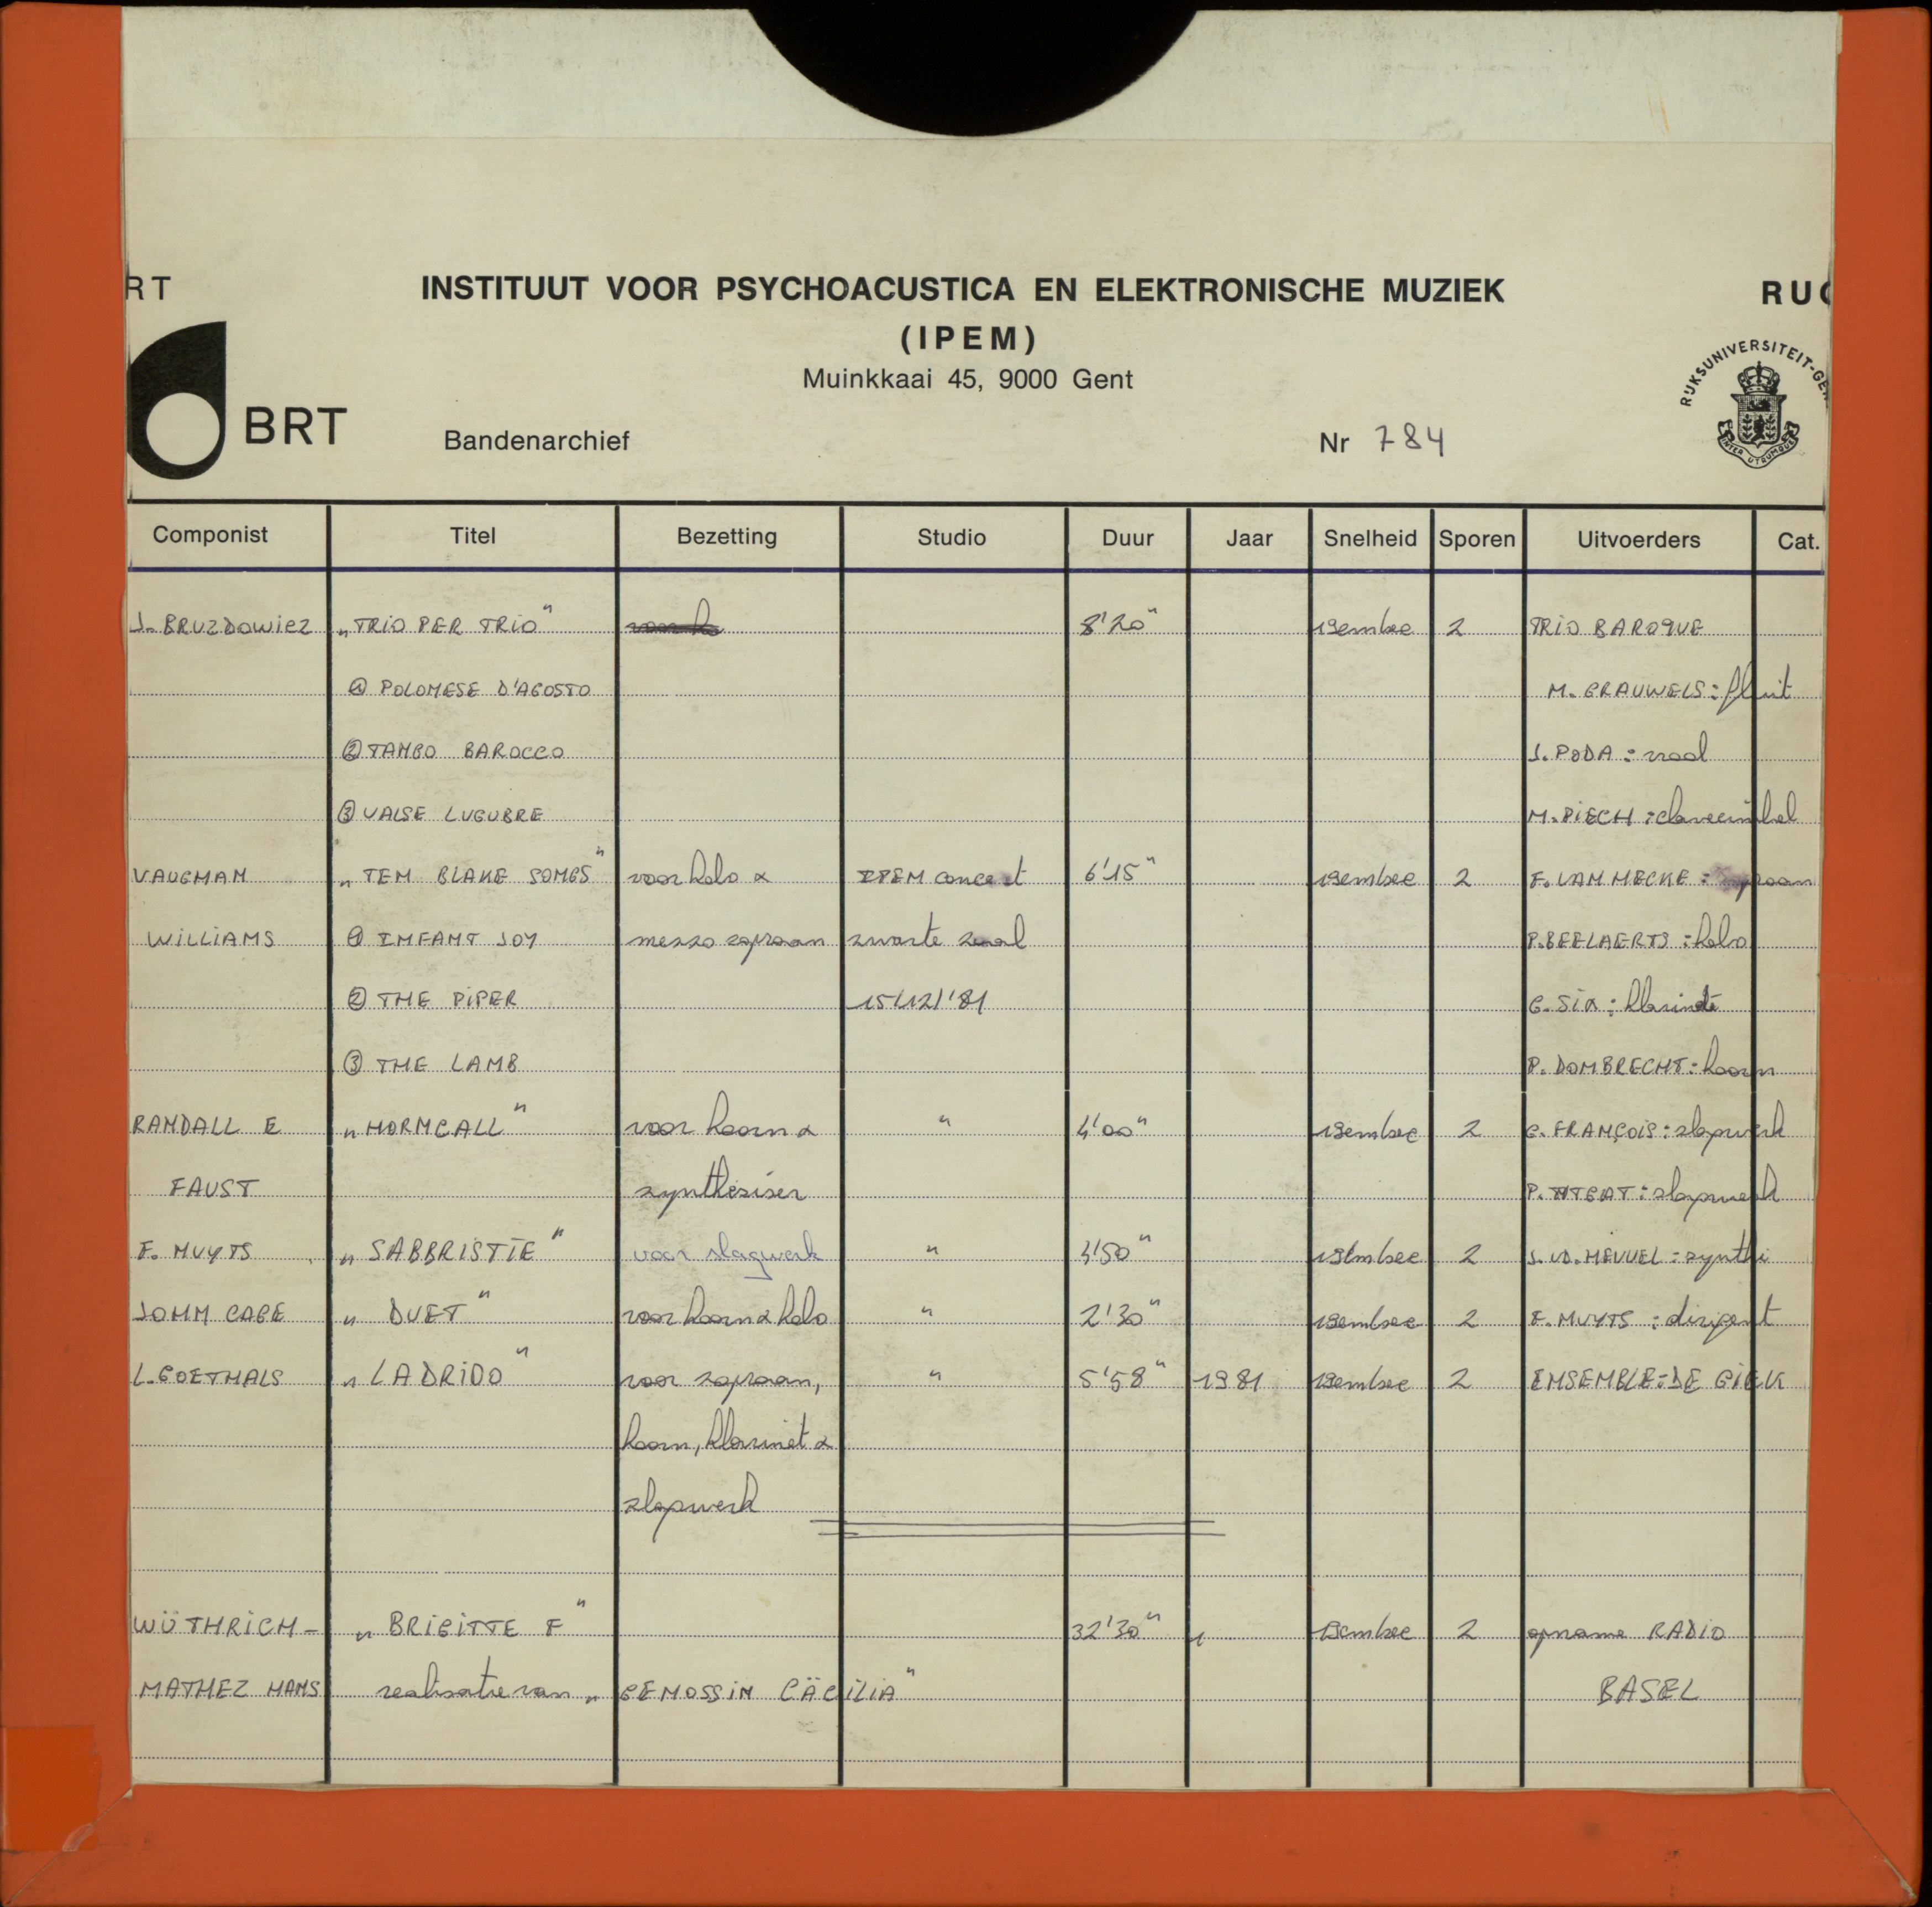 RT INSTITUUT VOOR PSYCHOACUSTICA EN ELEKTRONISCHE MUZIEK RUG
(IPEM)
Muinkkaai 45, 9000 Gent
RIJKSUNIVERSITEIT-GE
INTER UTRUMQUE
BRT Bandenarchief Nr 784
Componist Titel Bezetting Studio Duur Jaar Snelheid Sporen Uitvoerders Cat.
J. BRUZDOWIEZ „TRIO PER TRIO" 8'20" 19cm/sec 2 TRIO BAROQUE
① POLONESE D'AGOSTO M. GRAUWELS: fluit
② TANGO BAROCCO J. PODA: viool
③ VALSE LUGUBRE M. PIECH: clavecimbel
VAUGHAN „TEN BLAKE SONGS" voor hobo & IPEM concert 6'15" 19cm/sec 2 F. VANHECKE: sopraan
WILLIAMS ① INFANT JOY mezzo sopraan zwarte zaal P. BEELAERTS: hobo
② THE PIPER 15/12/'81 G. SIX: klarinet
③ THE LAMB P. DOMBRECHT: hoorn
RANDALL E „HORNCALL" voor hoorn & " 4'00" 19cm/sec 2 C. FRANÇOIS: slagwerk
FAUST synthesiser P. slagwerk
F. NUYTS „SABBRISTIE" voor slagwerk " 4'50" 19cm/sec 2 synthi
JOHN CAGE „DUET" voor hoorn & hobo " 2'30" 19cm/sec 2 F. NUYTS: dirigent
L. GOETHALS „LADRIDO" voor sopraan, " 5'58" 1981 19cm/sec 2 ENSEMBLE: DE GIEK
hoorn, klarinet &
slagwerk
WÜTHRICH- „BRIGITTE F" 32'30" 19cm/sec 2 opname RADIO
MATHEZ HANS realisatie van „GENOSSIN CÄCILIA" BASEL